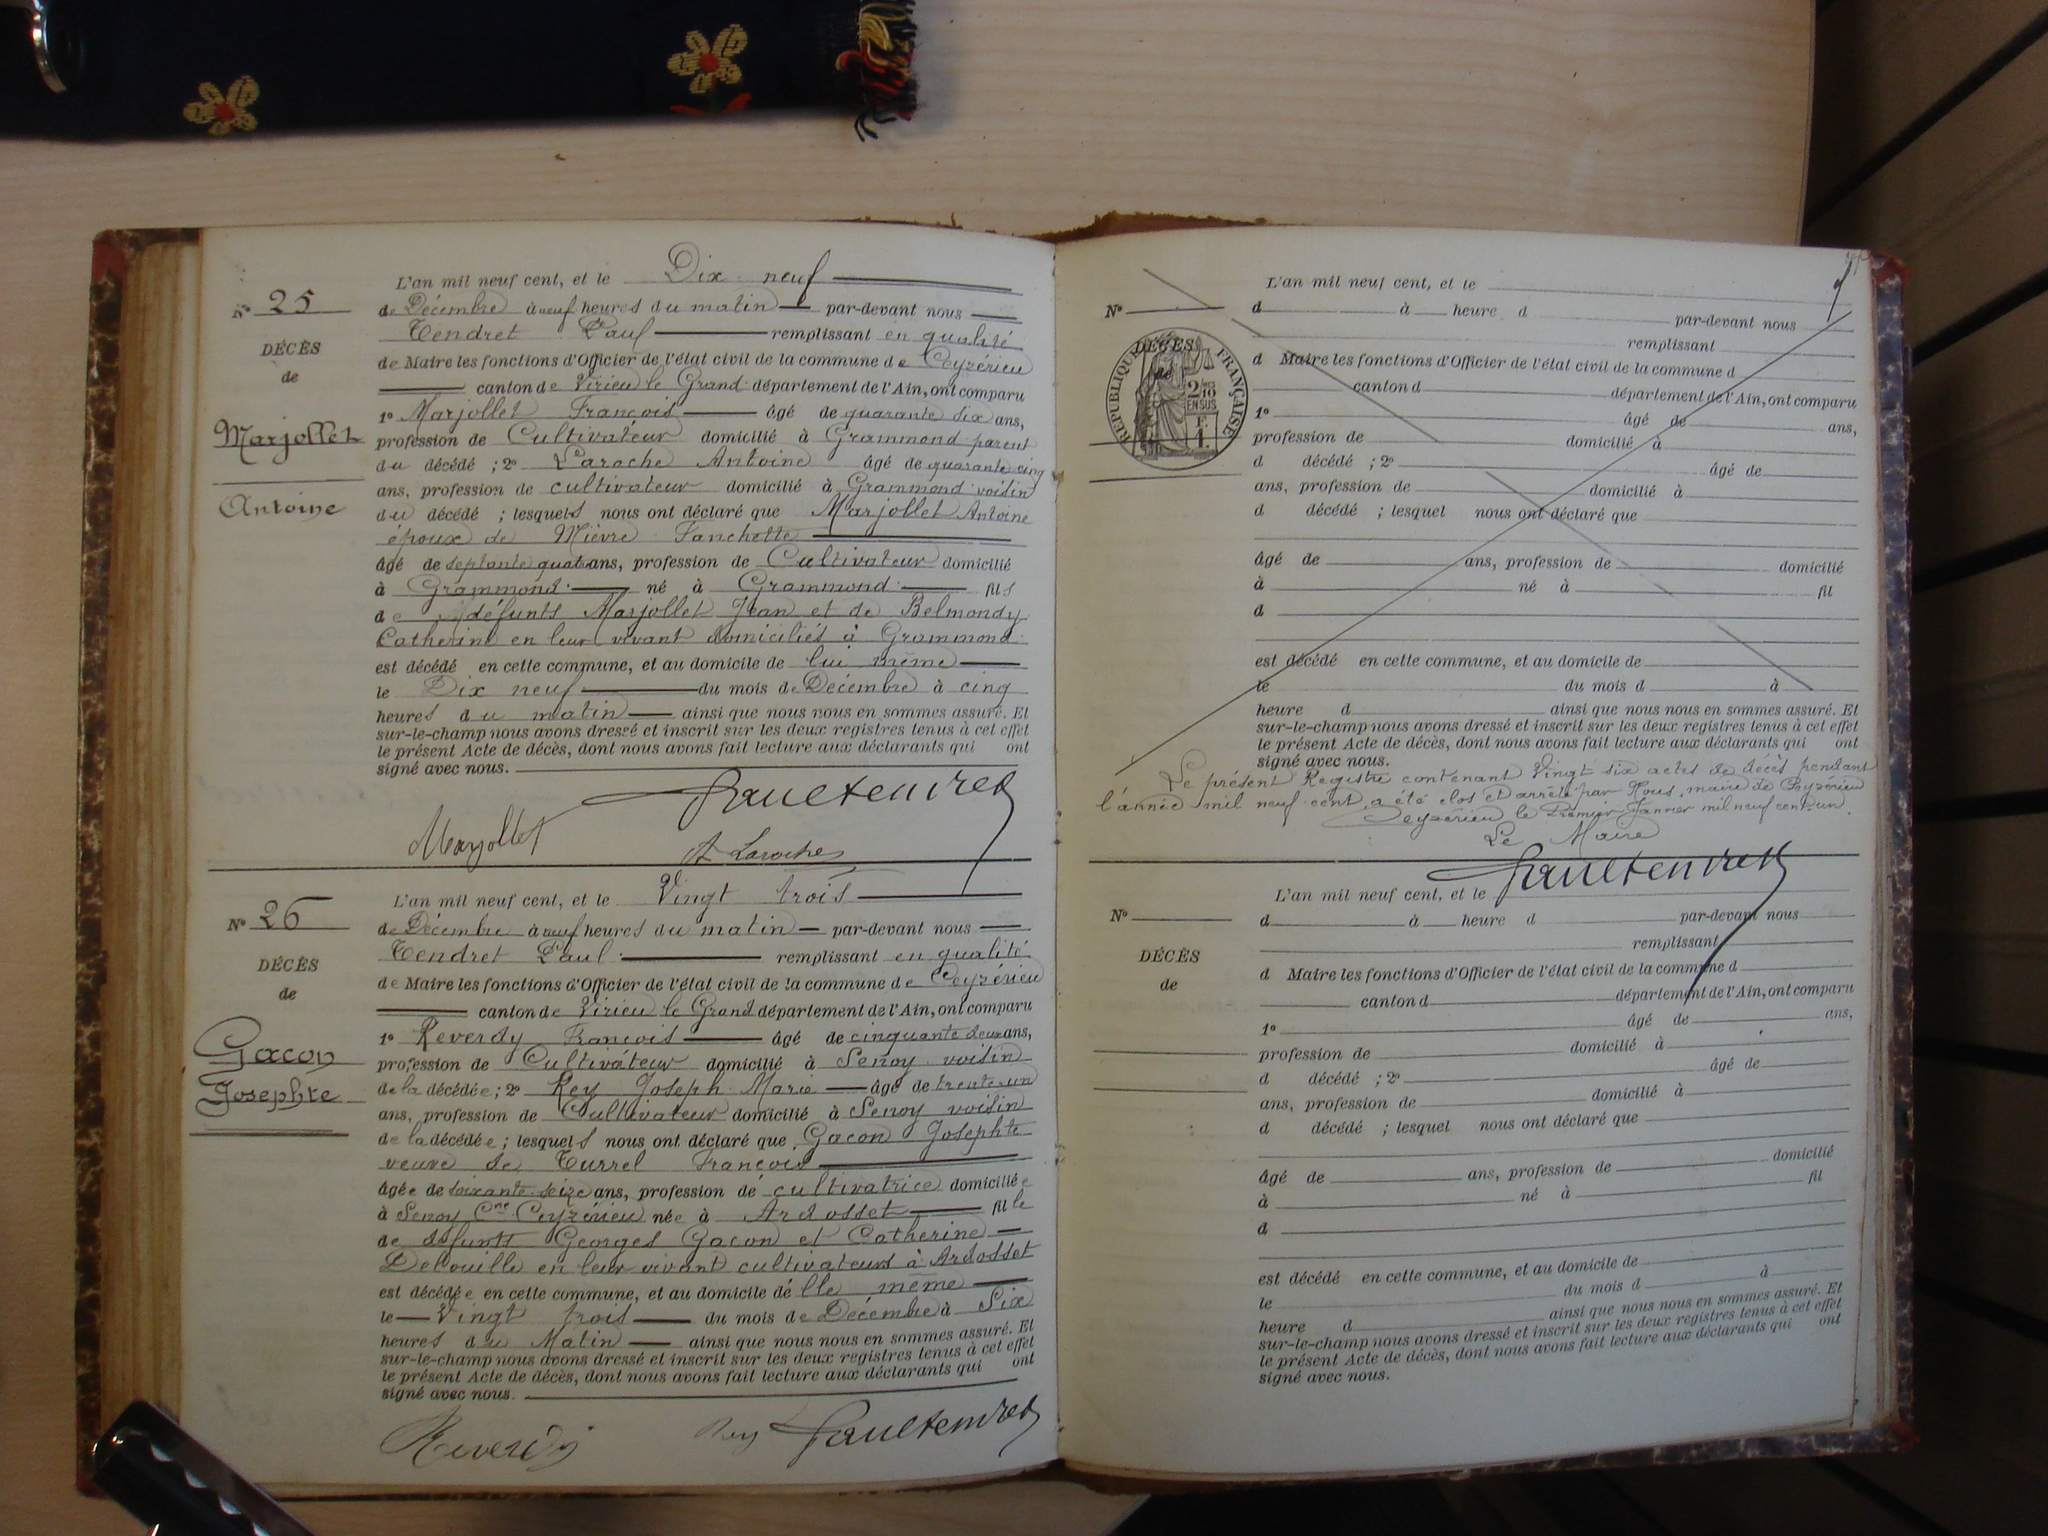 L'an mil neuf cent, et le Dix neuf
N° 25
de Décembre à neuf heures du matin par-devant nous
Tendret Paul remplissant en qualité
DÉCÈS
de Maire les fonctions d'Officier de l'état civil de la commune de Ceyzérieu
de
canton de Virieu le Grand département de l'Ain, ont comparu
1° Marjollet François âgé de quarante six ans,
Marjollet
profession de Cultivateur domicilié à Grammond parent
du décédé ; 2° Laroche Antoine âgé de quarante cinq
ans, profession de cultivateur domicilié à Grammond voisin
Antoine
du décédé ; lesquels nous ont déclaré que Marjollet Antoine
époux de Mièvre Fanchette
âgé de septante quatre ans, profession de Cultivateur domicilié
à Grammond né à Grammond fils
de défunts Marjollet Jean et de Belmondy
Catherine en leur vivant domiciliés à Grammond
est décédé en cette commune, et au domicile de lui même
le Dix neuf du mois de Décembre à cinq
heures du matin ainsi que nous nous en sommes assuré. Et
sur-le-champ nous avons dressé et inscrit sur les deux registres tenus à cet effet
le présent Acte de décès, dont nous avons fait lecture aux déclarants qui ont
signé avec nous.
Paul Tendret
Marjollet
A Laroche
L'an mil neuf cent, et le Vingt trois
N° 26
de Décembre à neuf heures du matin par-devant nous
Tendret Paul remplissant en qualité
DÉCÈS
de Maire les fonctions d'Officier de l'état civil de la commune de Ceyzérieu
de
canton de Virieu le Grand département de l'Ain, ont comparu
1° Reverdy François âgé de cinquante deux ans,
Gacon
profession de Cultivateur domicilié à Senoy voisin
Josephte
de la décédée ; 2° Rey Joseph Marie âgé de trente-un
ans, profession de Cultivateur domicilié à Senoy voisin
de la décédée ; lesquels nous ont déclaré que Gacon Josephte
veuve de Turrel François
âgée de soixante seize ans, profession de cultivatrice domiciliée
à Senoy Cne Ceyzérieu née à Ardosset fille
de défunts Georges Gacon et Catherine
Debouille en leur vivant cultivateurs à Ardosset
est décédée en cette commune, et au domicile d'elle même
le Vingt trois du mois de Décembre à Six
heures du Matin ainsi que nous nous en sommes assuré. Et
sur-le-champ nous avons dressé et inscrit sur les deux registres tenus à cet effet
le présent Acte de décès, dont nous avons fait lecture aux déclarants qui ont
signé avec nous.
Reverdy Rey Paul Tendret
L'an mil neuf cent, et le
N°
d à heure d par-devant nous
remplissant
DÉCÈS
de
RÉPUBLIQUE FRANÇAISE
2/10 EN SUS
F. 1.
d Maire les fonctions d'Officier de l'état civil de la commune d
canton d département de l'Ain, ont comparu
1° âgé de ans,
profession de domicilié à
d décédé ; 2° âgé de
ans, profession de domicilié à
d décédé ; lesquel nous ont déclaré que
âgé de ans, profession de domicilié
à né à fil
d
est décédé en cette commune, et au domicile de
le du mois d à
heure d ainsi que nous nous en sommes assuré. Et
sur-le-champ nous avons dressé et inscrit sur les deux registres tenus à cet effet
le présent Acte de décès, dont nous avons fait lecture aux déclarants qui ont
signé avec nous.
Le présent Registre contenant Vingt six actes de décès pendant
l'année mil neuf cent, a été clos et arrêté par Nous, maire de Ceyzérieu
Ceyzérieu le Premier Janvier mil neuf cent un.
Le Maire
Paul Tendret
L'an mil neuf cent, et le
N°
d à heure d par-devant nous
remplissant
DÉCÈS
de
d Maire les fonctions d'Officier de l'état civil de la commune d
canton d département de l'Ain, ont comparu
1° âgé de ans,
profession de domicilié à
d décédé ; 2° âgé de
ans, profession de domicilié à
d décédé ; lesquel nous ont déclaré que
âgé de ans, profession de domicilié
à né à fil
d
est décédé en cette commune, et au domicile de
le du mois d à
heure d ainsi que nous nous en sommes assuré. Et
sur-le-champ nous avons dressé et inscrit sur les deux registres tenus à cet effet
le présent Acte de décès, dont nous avons fait lecture aux déclarants qui ont
signé avec nous.